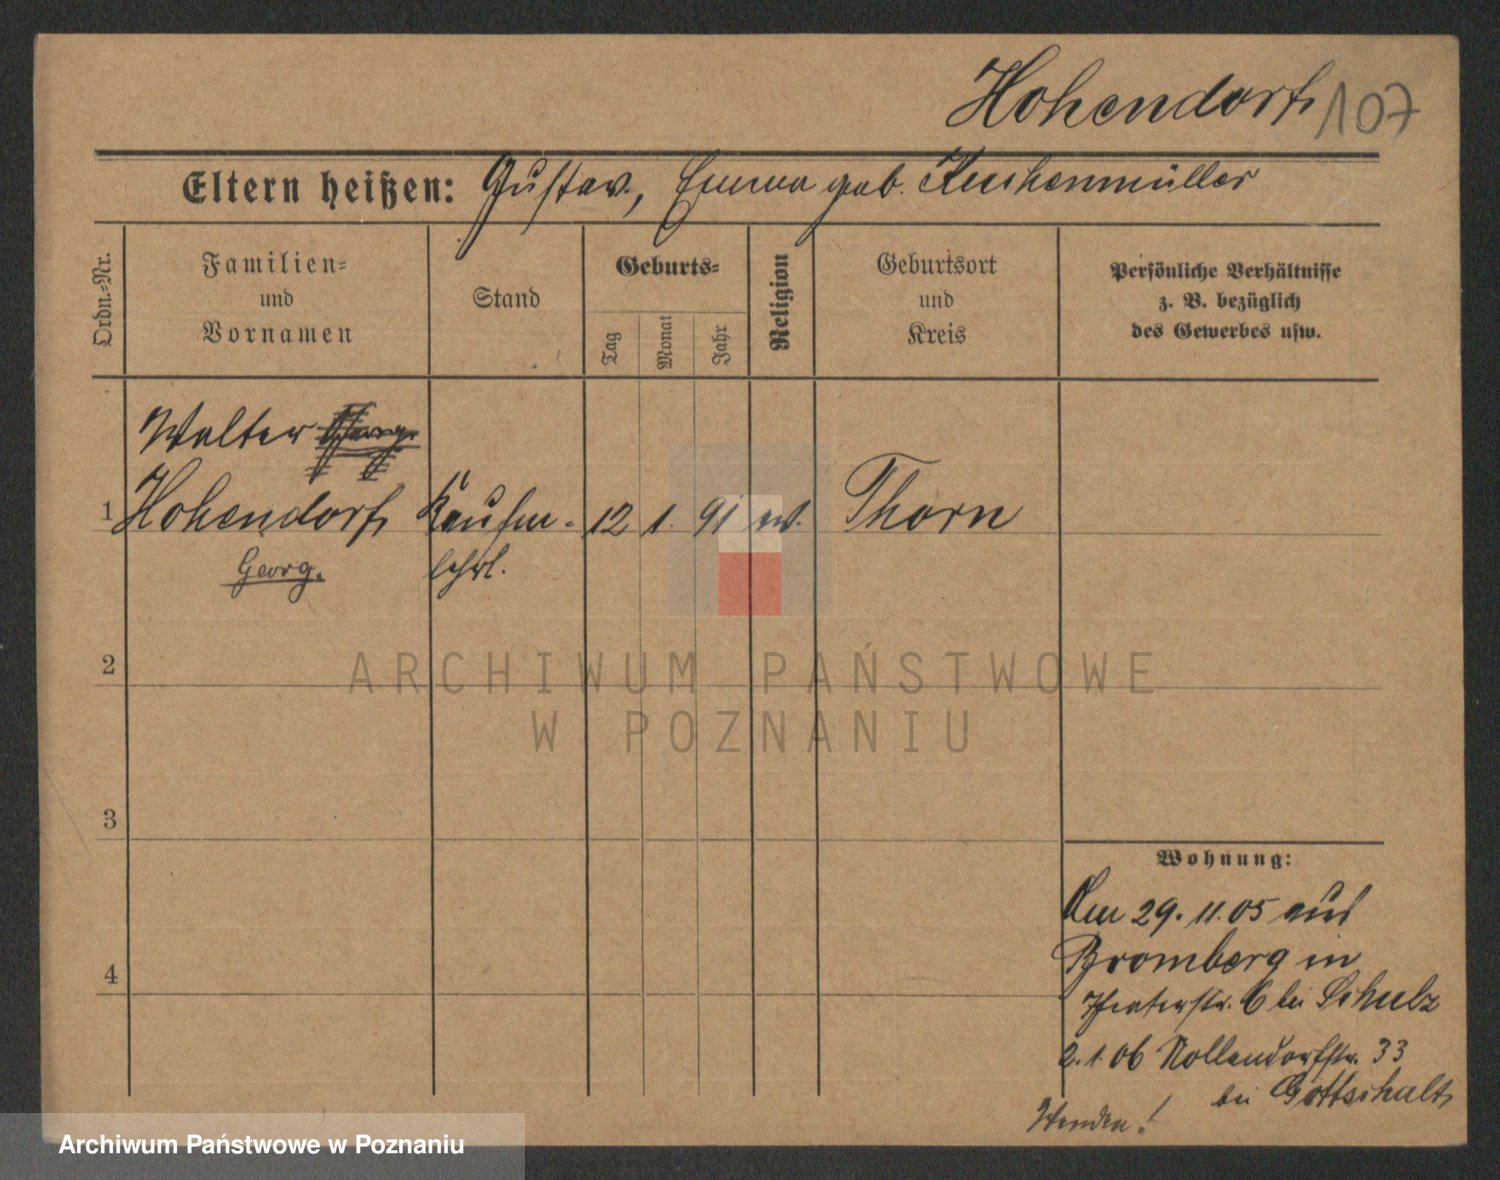 Hohendorf 107
Eltern heißen: Gustav, Emma geb. Kuchenmüller
Ordn.-Nr.
Familien-
und
Vornamen
Stand
Geburts-
Tag
Monat
Jahr
Religion
Geburtsort
und
Kreis
Persönliche Verhältnisse
z. B. bezüglich
des Gewerbes usw.
Walter Georg
1 Hohendorf Kaufm- 12 1. 91 ev. Thorn
Georg. lehrl.
2
ARCHIWUM PAŃSTWOWE
W POZNANIU
3
Wohnung:
Am 29. 11. 05 aus
Bromberg in
4
Theaterstr. 6 bei Schulz
2. 1. 06 Nollendorfstr. 33
bei Gottschalk
Wenden!
Archiwum Państwowe w Poznaniu